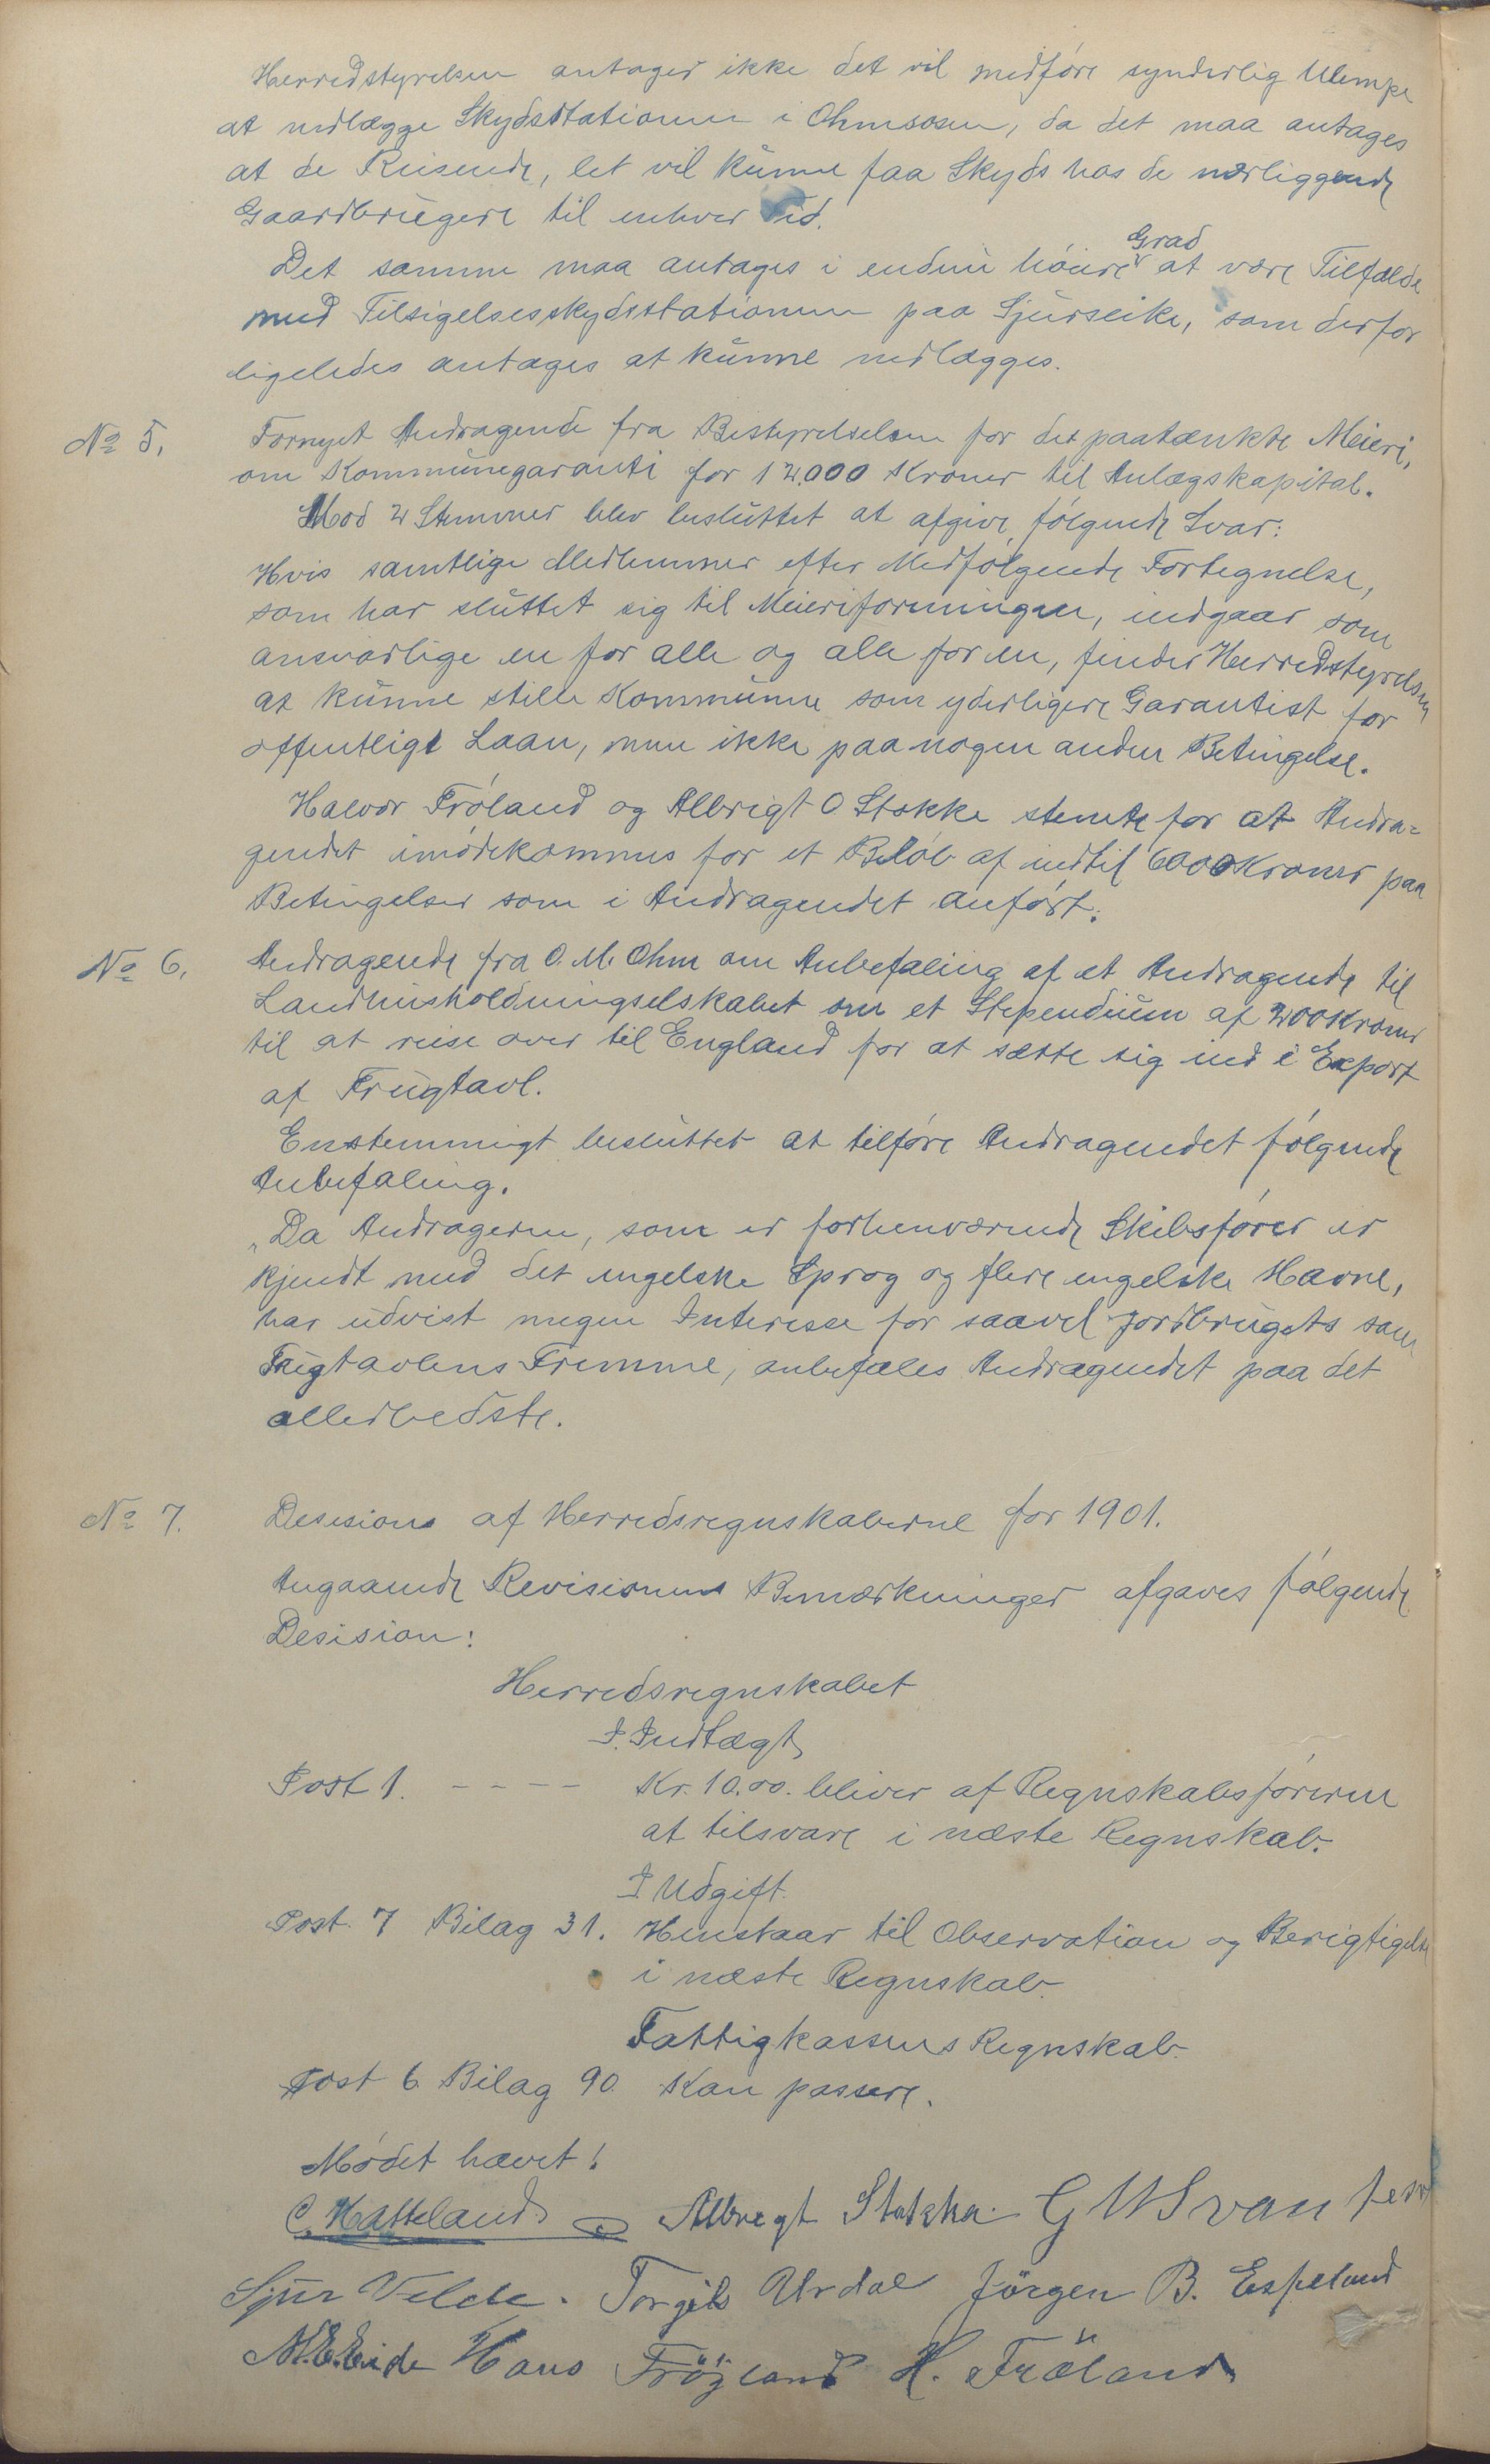 Herredstyrelsen antager ikke det vil medføre synderlig Ulempe
at nedlægge Skydsstationen i Ohmsosen, da det maa antages
at de Reisende, let vil kunne faa Skyds hos de nærliggende
Gaardbrugere til enhver Tid.
Det samme maa antages i endnu høiere Grad at være Tilfælde
med Tilsigelsesskydsstationen paa Sjurseike, som derfor
ligeledes antages at kunne nedlægges.
No 5. Fornyet Andragende fra Bestyrelselsen for det paatænkte Meieri,
om Kommunegaranti for 12.000 Kroner til Anlægskapital.
Mod 2 Stemmer blev besluttet at afgive følgende Svar:
Hvis samtlige Medlemmer efter Medfølgende Fortegnelse,
som har sluttet sig til Meieriforeningen, indgaar som
ansvarlige en for alle og alle for en, finder Herredstyrelsen
at kunne stille Kommunen som yderligere Garantist for
offentligt Laan, men ikke paa nogen anden Betingelse.
Halvor Frøland og Albrigt O Stokke stemte for at Andra=
gendet imødekommes for et Beløb af indtil 6000 Kroner paa
Betingelser som i Andragendet anført.
No 6. Andragende fra O. M. Ohm om Anbefaling af et Andragende til
Landhusholdningselskabet om et Stependium af 200 Kroner
til at reise over til England for at sætte sig ind i Export
af Frugtavl.
Enstemmigt besluttet at tilføre Andragendet følgende
Anbefaling.
„Da Andrageren, som er forhenværende Skibsfører er
kjendt med det engelske Sprog og flere engelske Havne,
har udvist megen Interesse for saavel Jordbrugets som
Frugtavlens Fremme, anbefales Andragendet paa det
allerbedste.
No 7. Desisions af Herredsregnskaberne for 1901.
Angaaende Revisionens Bemærkninger afgaves følgende
Desision:
Herredsregnskabet
I. Indtægt
Post 1. - - - - Kr. 10.00. bliver af Regnskabsføreren
at tilsvare i næste Regnskab.
I Udgift
Post. 7 Bilag 31. Henstaar til Observation og Berigtigelse
i næste Regnskab.
Fattigkassens Regnskab.
Post 6 Bilag 90. Kan passere.
Mødet hævet!
C. Hatteland Albregt Stokka G W Svantesen
Sjur Velde. Torgils Urdal Jörgen B. Espeland
N. E. Eide Hans Fröyland H. Fröland